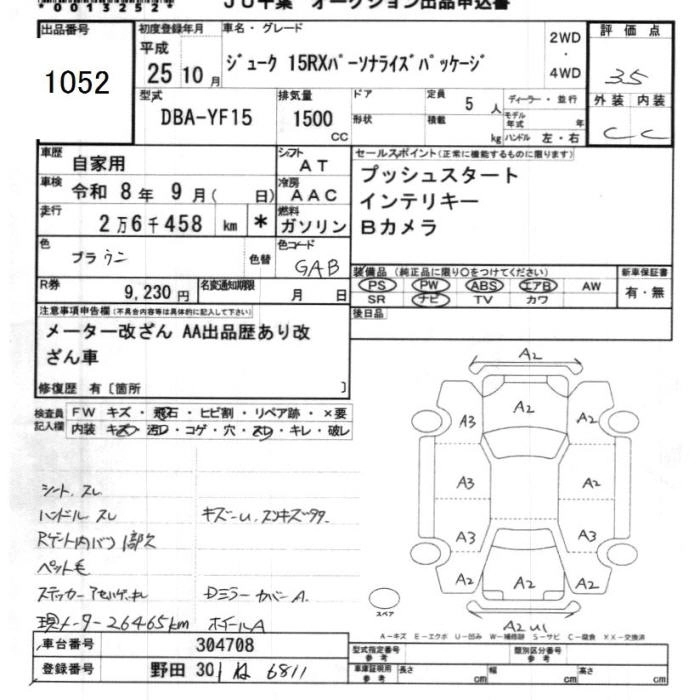 00132524
JU千葉 オークション出品申込書
出品番号
1052
初度登録年月
平成
25年10月
車名・グレード
ジューク 15RXパーソナライズパッケージ
2WD
・
4WD
評価点
3.5
外装 内装
C C
型式
DBA-YF15
排気量
1500
CC
ドア
形状
定員 5 人
積載 kg
ディーラー・並行
モデル年式 年
ハンドル 左・右
車歴 自家用
シフト AT
車検 令和 8年 9月( 日)
冷房 AAC
走行 2万6千458 km *
燃料 ガソリン
色 ブラウン 色替
色コード GAB
セールスポイント(正常に機能するものに限ります)
プッシュスタート
インテリキー
Bカメラ
装備品(純正品に限り○をつけてください)
PS PW ABS エアB AW
SR ナビ TV カワ
新車保証書
有・無
R券 9,230円
名変通知期限 月 日
後日品
注意事項申告欄(不具合内容等は具体的に記入して下さい)
メーター改ざん AA出品歴あり改
ざん車
修復歴 有〔箇所 〕
検査員記入欄
FW キズ・飛石・ヒビ割・リペア跡・×要
内装 キズ・汚レ・コゲ・穴・スレ・キレ・破レ
シート、スレ
ハンドル スレ
Rゲート内バリ 1部欠
ペット毛
ステッカー
現メーター26465km
キズーU、スリキズ
Dミラーカバー A
ホイールA
A2
A2
A3 A2
A3 A2
A3 A2
A2 A2 A2
A2 U1
スペア
A-キズ E-エクボ U-凹み W-補修跡 S-サビ C-腐食 XX-交換済
車台番号 304708
登録番号 野田 301 ね 6811
型式指定番号 参考
類別区分番号 参考
車庫証明用 参考
長さ cm 幅 cm 高さ cm